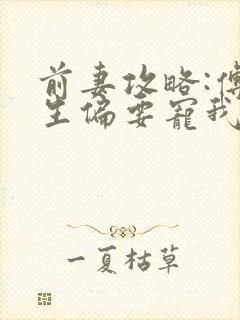 前妻攻略:傅
生偏要宠我
一夏枯草